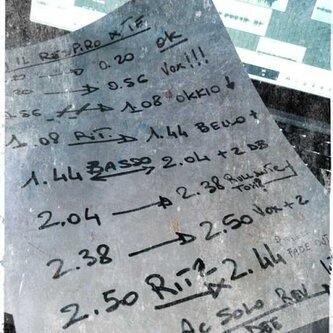 IL RESPIRO X TE
→ 0.20 OK
→ 0.56 VOX!!!
0.56 → 1.08 OKKIO ↓
1.08 RIT. → 1.44 BELLO +
1.44 BASSO 2.04 + 2 DB
2.04 → 2.38 TOM
2.38 → 2.50 VOX + 2
2.50 RIT? 2.44 FADE OUT
AC SOLO REV